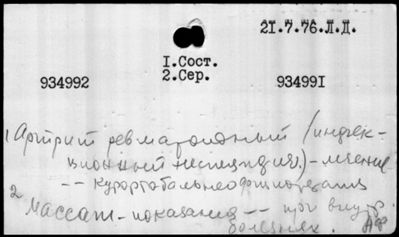 21.7.76.Л.Д.
1.Сост.
2.Сер.
934992
934991
1 Артрит ревматоидный (инфек-
ционный неспецифич.) - лечение
-- курортобальнеофизиотерапия
2 Массаж - показания -- при внутр.
болезнях.